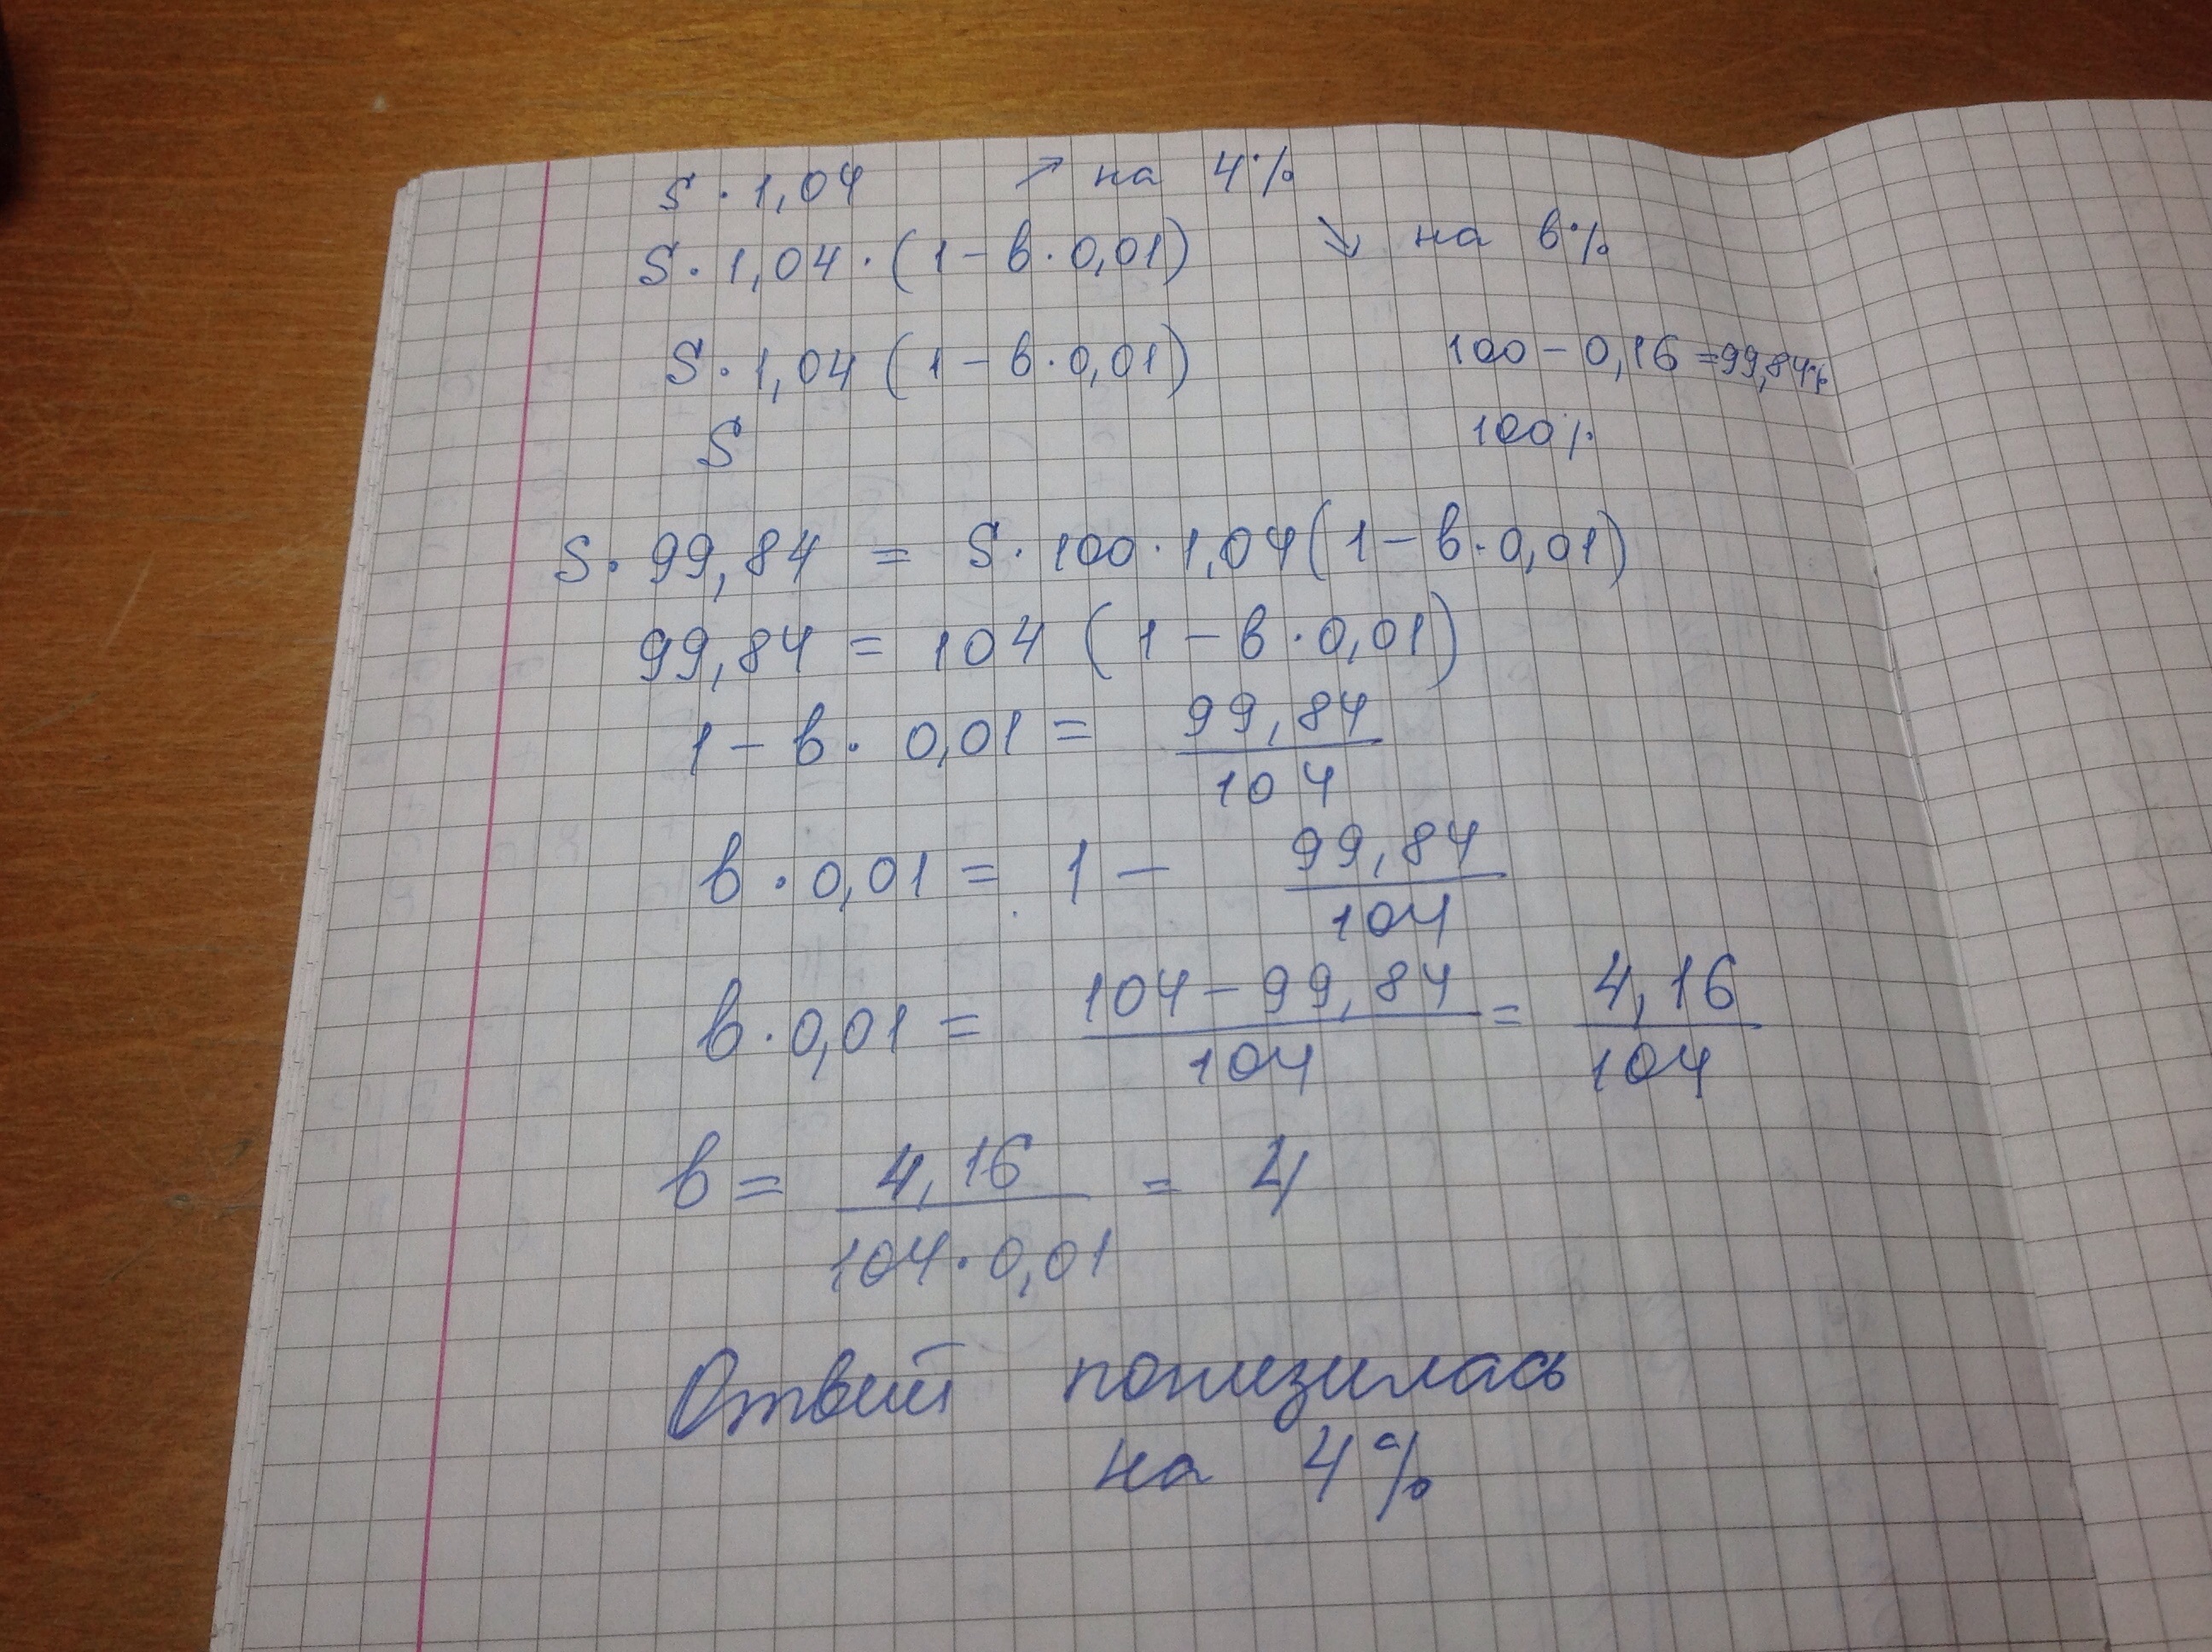 S · 1,04 ↗ на 4%
S · 1,04 · (1 - в · 0,01) ↘ на в%
S · 1,04 (1 - в · 0,01) 100 - 0,16 = 99,84%
S 100%
S · 99,84 = S · 100 · 1,04 (1 - в · 0,01)
99,84 = 104 (1 - в · 0,01)
1 - в · 0,01 = 99,84 / 104
в · 0,01 = 1 - 99,84 / 104
в · 0,01 = 104 - 99,84 / 104 = 4,16 / 104
в = 4,16 / 104 · 0,01 = 4
Ответ понизилась
на 4%